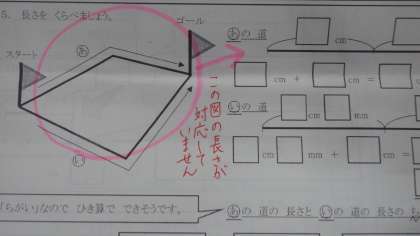 5. 長さを くらべましょう。
スタート
ゴール
あ
い
あの 道
cm
cm + cm =
いの 道
cm mm + cm
この図の長さが
対応して
いません
「ちがい」なので ひき算で できそうです。
あの 道の 長さと いの 道の 長さの